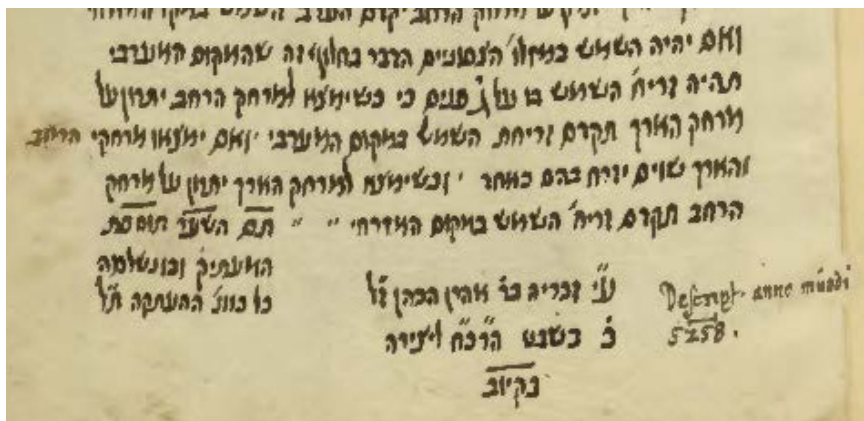 ואם יהיה השמש במזלו׳ הצפוניים הדבר בחלוף זה שהמקום המערבי
תהיה זריח׳ השמש בו על ג׳ פנים כי כשימצא למרחק הרחב יתרון על
מרחק הארך תקדם זריחת השמש במקום המערבי ואם ימצאו מרחקי הרחב
והארך שוים יזרח בהם כאחד וכשימצא למרחק הארך יתרון על מרחק
הרחב תקדם זריח׳ השמש במקום המזרחי ״ ״ תם השער תוספת
המעתיק ובו נשלמה
כל כוונ׳ ההעתקה ת״ל
ע״י זכריה בר׳ אהרן הכהן ז״ל
כ׳ בשבט הרנ״ח ליצירה
בקיוב
Descript. anno mundi
5258.